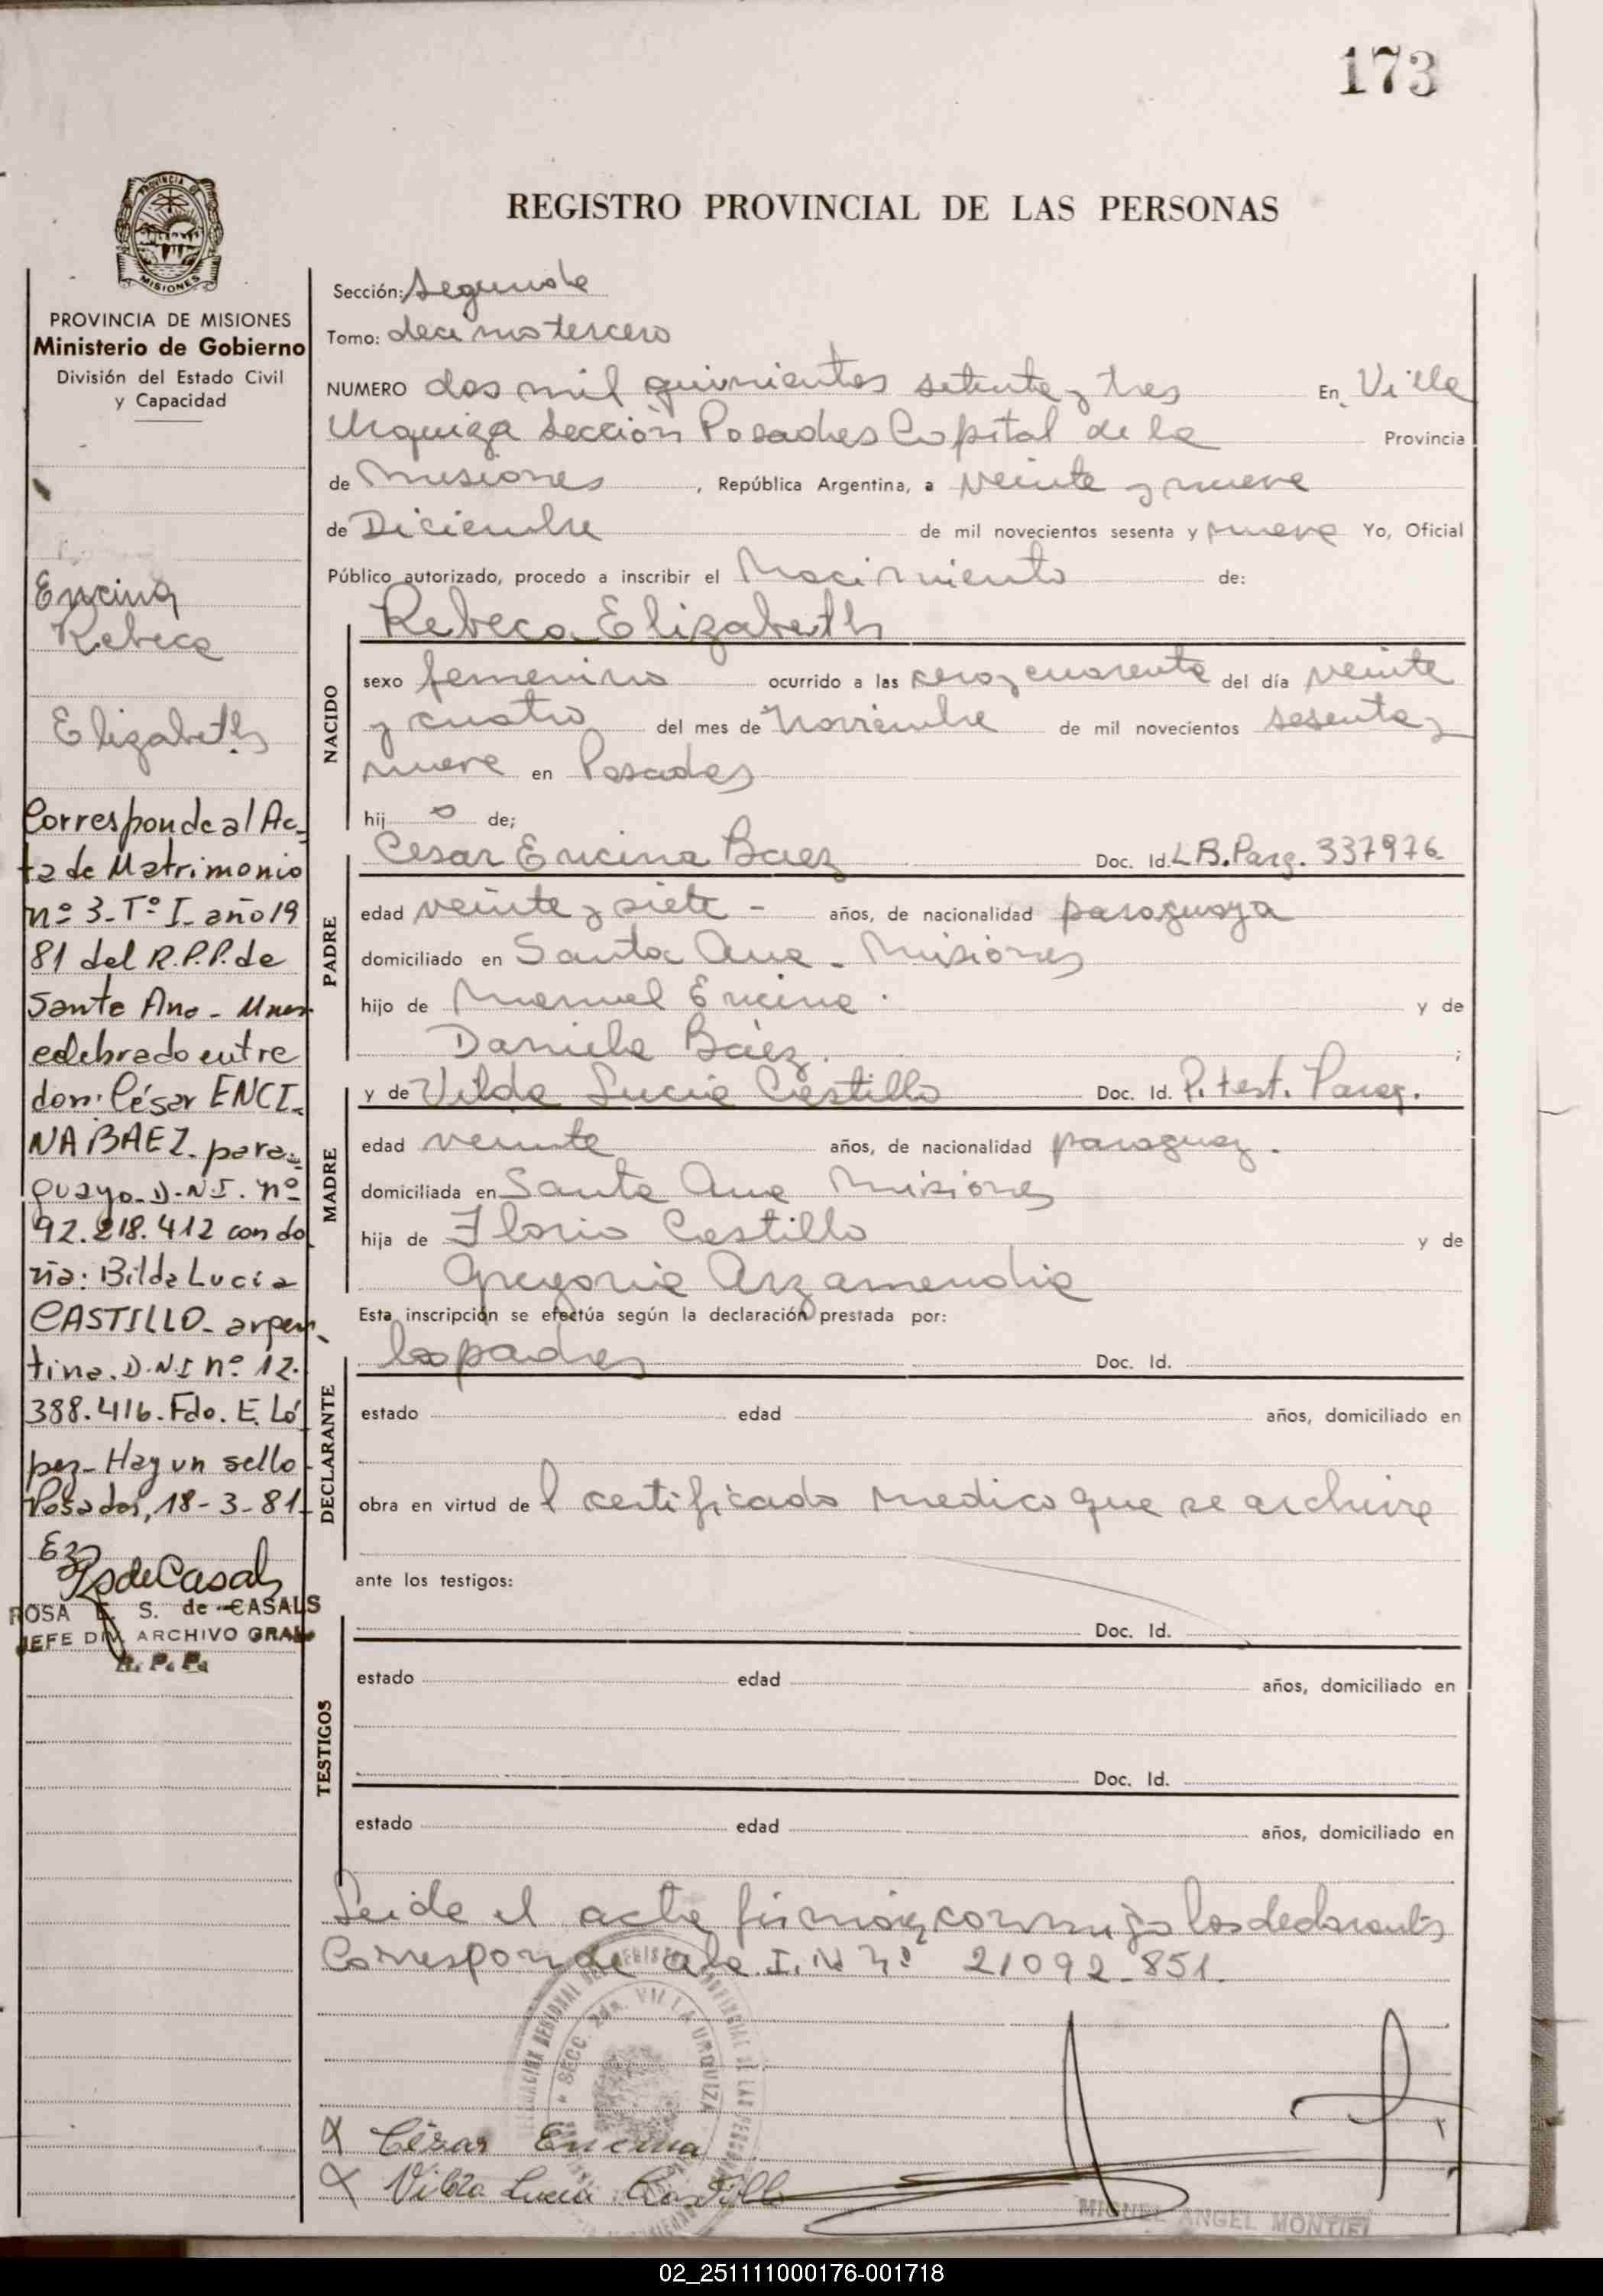 173
REGISTRO PROVINCIAL DE LAS PERSONAS
PROVINCIA DE MISIONES
PROVINCIA DE MISIONES
Ministerio de Gobierno
División del Estado Civil
y Capacidad
Encina
Rebeca
Elizabeth
Corresponde al Ac-
ta de Matrimonio
nº 3-Tº I- año 19
81 del R.P.P. de
Santa Ana - Mnes
celebrado entre
don: César ENCI-
NA BAEZ- para-
guayo-D-NI. nº
92.218.412 con do
ña: Bilda Lucia
CASTILLO- argen-
tina. D.N.I nº 12.
388.416. Fdo. E. Ló
pez- Hay un sello-
Posadas, 18-3-81-
ROSA E. S. de CASALS
JEFE DIV. ARCHIVO GRAL
R. P. P.
Sección: Segunda
Tomo: decimo tercero
NUMERO dos mil quinientos setenta y tres En Villa
Urquiza Sección Posadas Capital de la Provincia
de Misiones, República Argentina, a veinte y nueve
de Diciembre de mil novecientos sesenta y nueve Yo, Oficial
Público autorizado, procedo a inscribir el Nacimiento de:
NACIDO
Rebeca Elizabeth
sexo femenino ocurrido a las cero y cuarenta del día veinte
y cuatro del mes de Noviembre de mil novecientos sesenta y
nueve en Posadas
hij o de;
PADRE
Cesar Encina Baez Doc. Id. L B. Parg. 337976
edad veinte y siete - años, de nacionalidad paraguaya
domiciliado en Santa Ana - Misiones
hijo de Manuel Encina. y de
Daniela Báez. ;
MADRE
y de Vilda Lucia Castillo Doc. Id. P. test. Parag.
edad veinte años, de nacionalidad paraguay.
domiciliada en Santa Ana Misiones
hija de Florio Castillo y de
Gregoria Arzamendia
Esta inscripción se efectúa según la declaración prestada por:
DECLARANTE
los padres Doc. Id.
estado edad años, domiciliado en
obra en virtud del certificado medico que se archiva
ante los testigos:
TESTIGOS
Doc. Id.
estado edad años, domiciliado en
Doc. Id.
estado edad años, domiciliado en
Leida el acta firman conmigo los declarantes
Corresponde a la I. N nº 21092-851.
SECC. 2da. VILLA URQUIZA
César Encina
Vilda Lucia Castillo
MIGUEL ANGEL MONTIEL
02_251111000176-001718